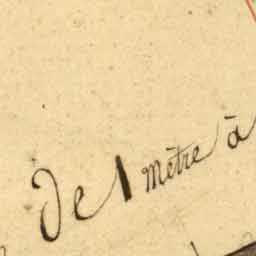 De 1 mètre à